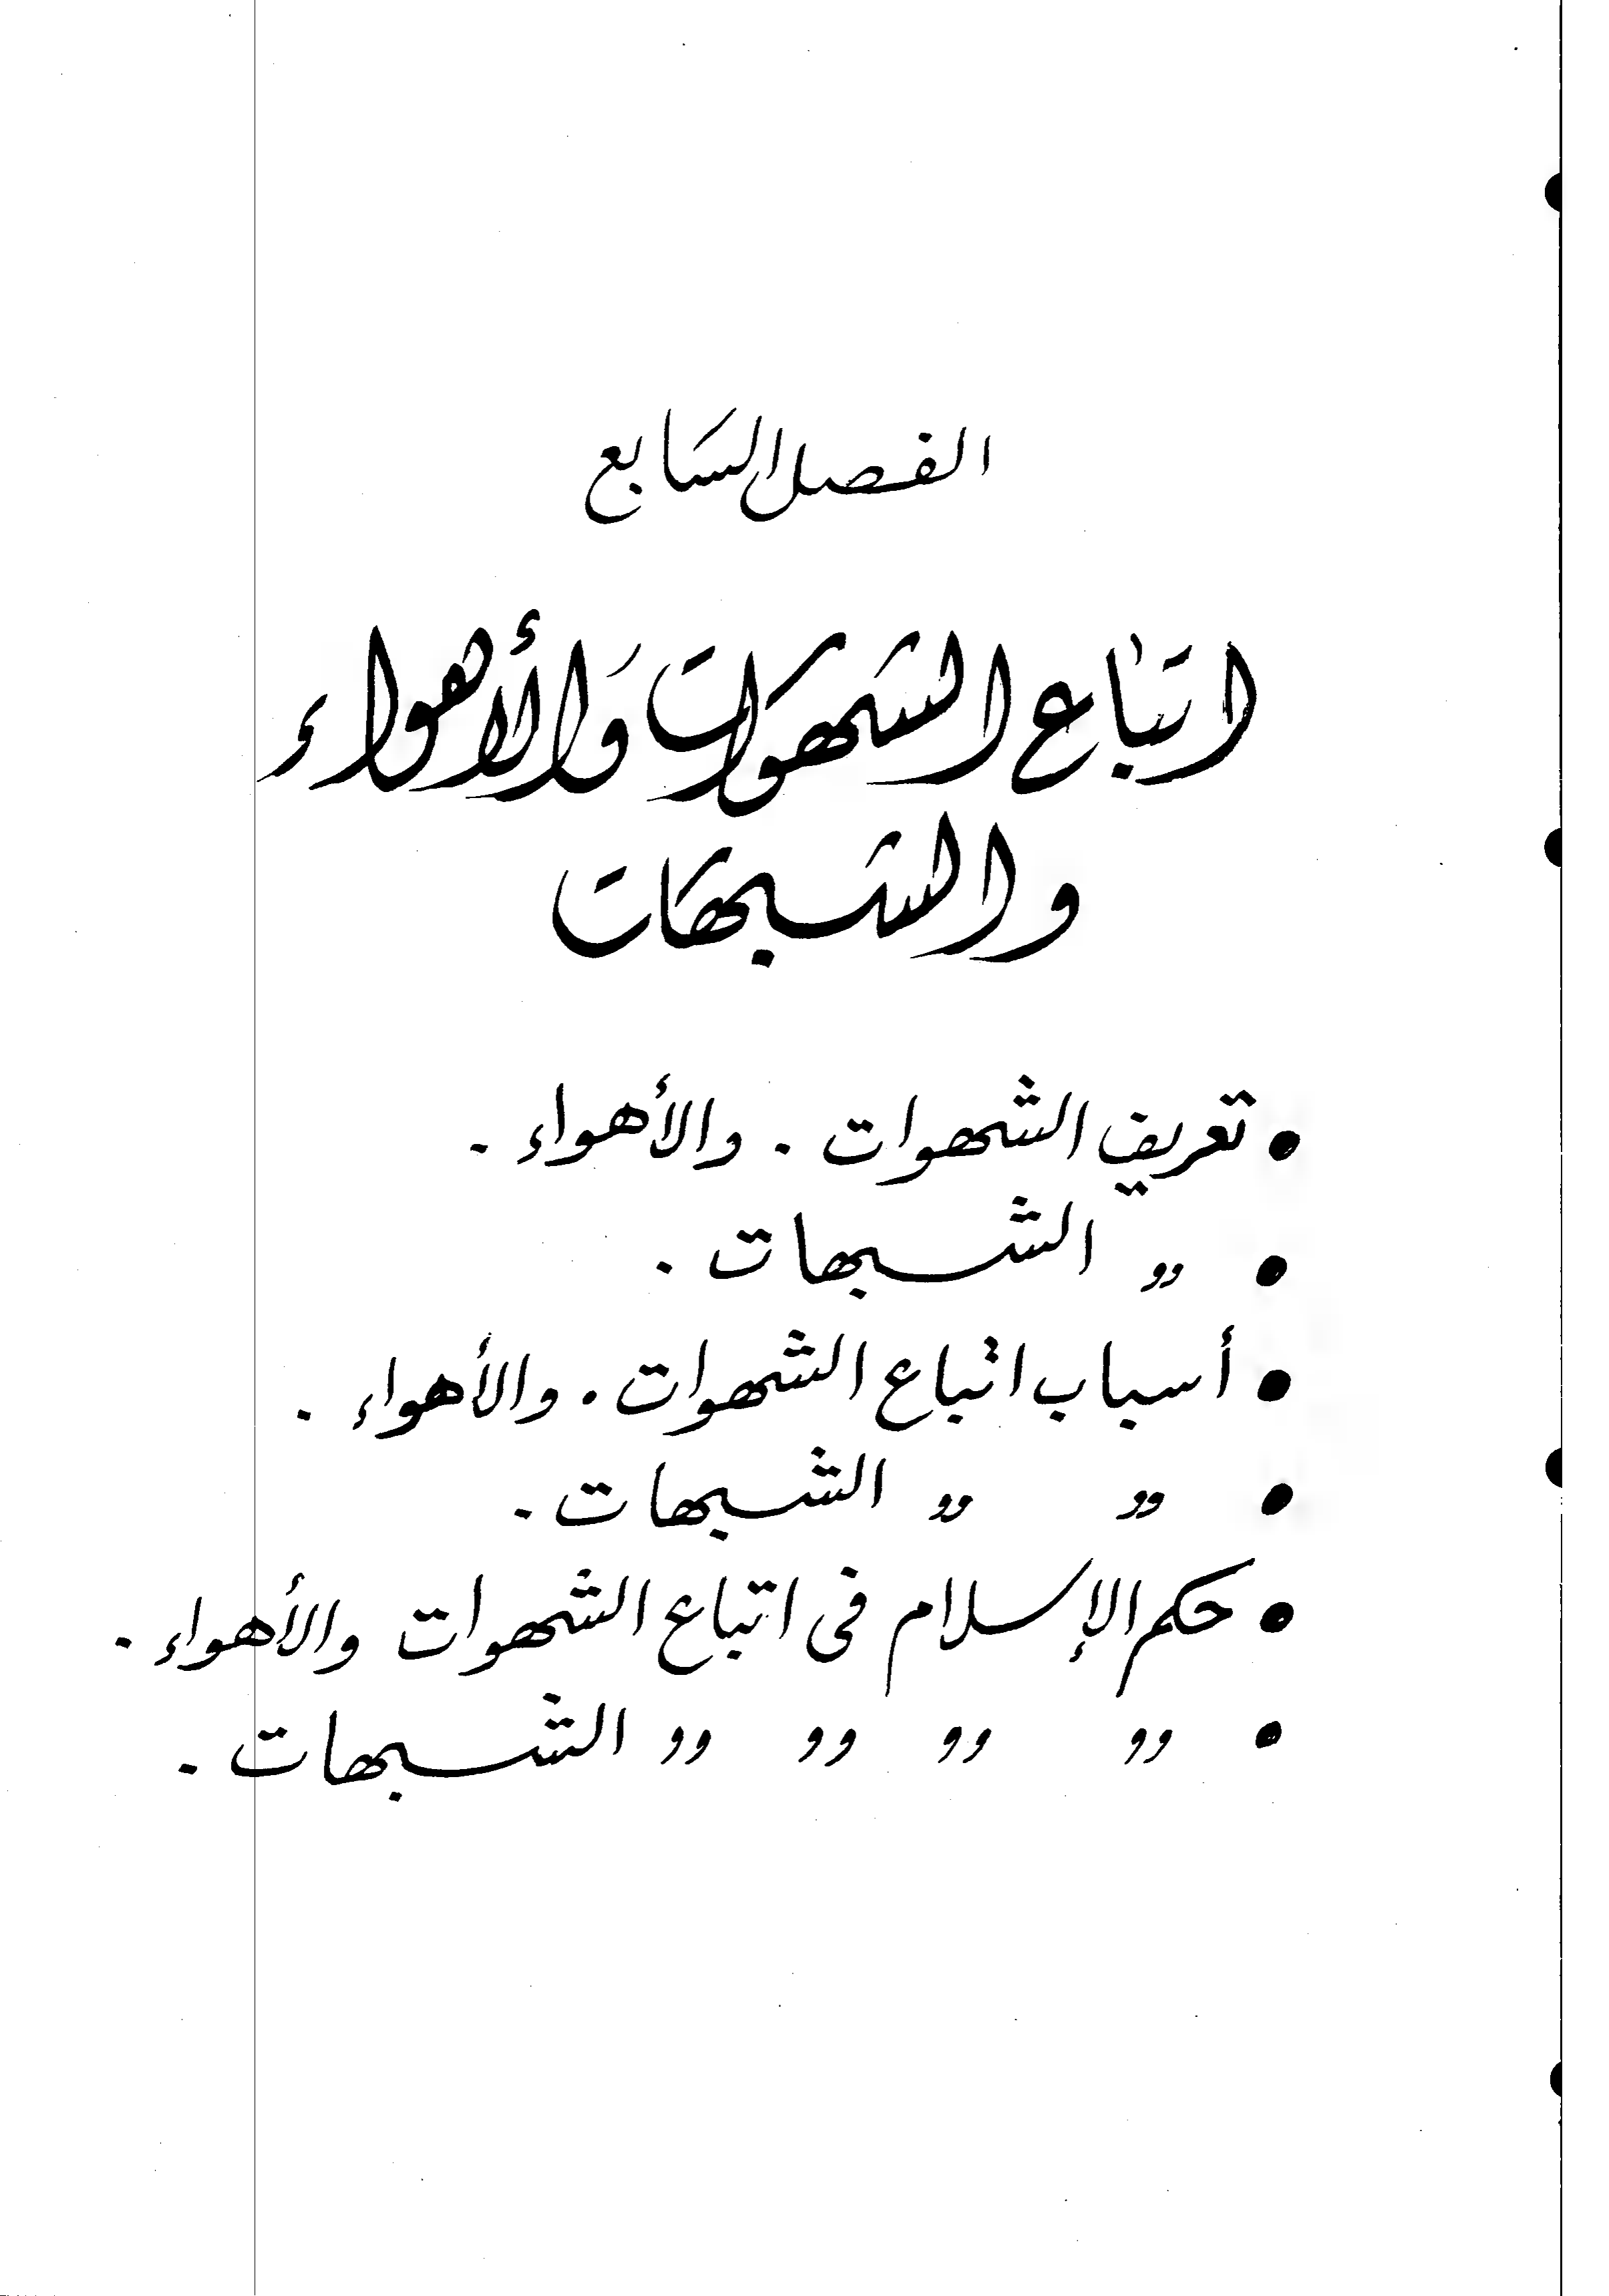 الفصل السابع
اتباع الشهوات والأهواء
والشبهات
● تعريف الشهوات . والأهواء .
● „ الشبهات .
● أسباب اتباع الشهوات . والأهواء .
● „ „ الشبهات .
● حكم الإسلام فى اتباع الشهوات والأهواء .
● „ „ „ „ الشبهات .